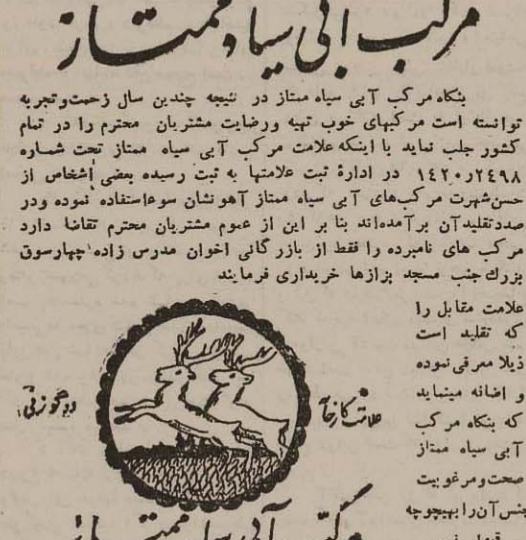 مرکب آبی سیاه ممتاز
بنگاه مرکب آبی سیاه ممتاز در نتیجه چندین سال زحمت وتجربه
توانسته است مرکبهای خوب تهیه ورضایت مشتریان محترم را در تمام
کشور جلب نماید با اینکه علامت مرکب آبی سیاه ممتاز تحت شماره
۲۴۹۸ر۱۴۲۰ در ادارهٔ ثبت علامتها به ثبت رسیده بعضی اشخاص از
حسن شهرت مرکب‌های آبی سیاه ممتاز آهو نشان سوءاستفاده نموده ودر
صدد تقلید آن برآمده‌اند بنا بر این از عموم مشتریان محترم تقاضا دارد
مرکب های نامبرده را فقط از بازرگانی اخوان مدرس زاده چهارسوق
بزرك جنب مسجد بزازها خریداری فرمایند
علامت مقابل را
که تقلید است
ذیلا معرفی نموده
و اضافه مینماید
که بنگاه مرکب
آبی سیاه ممتاز
صحت و مرغوبیت
جنس آن را بهیچوجه
علامت کارخانه
مرکب آبی سیاه ممتاز